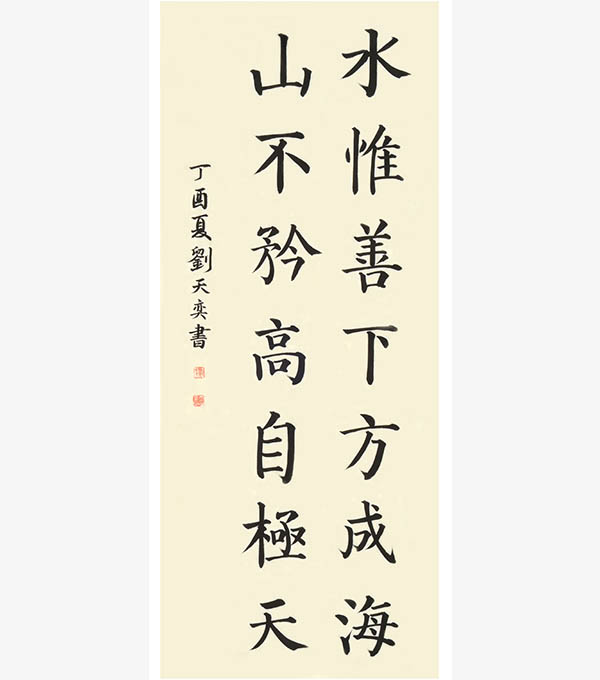 水惟善下方成海
山不矜高自極天
丁酉夏劉天奕書